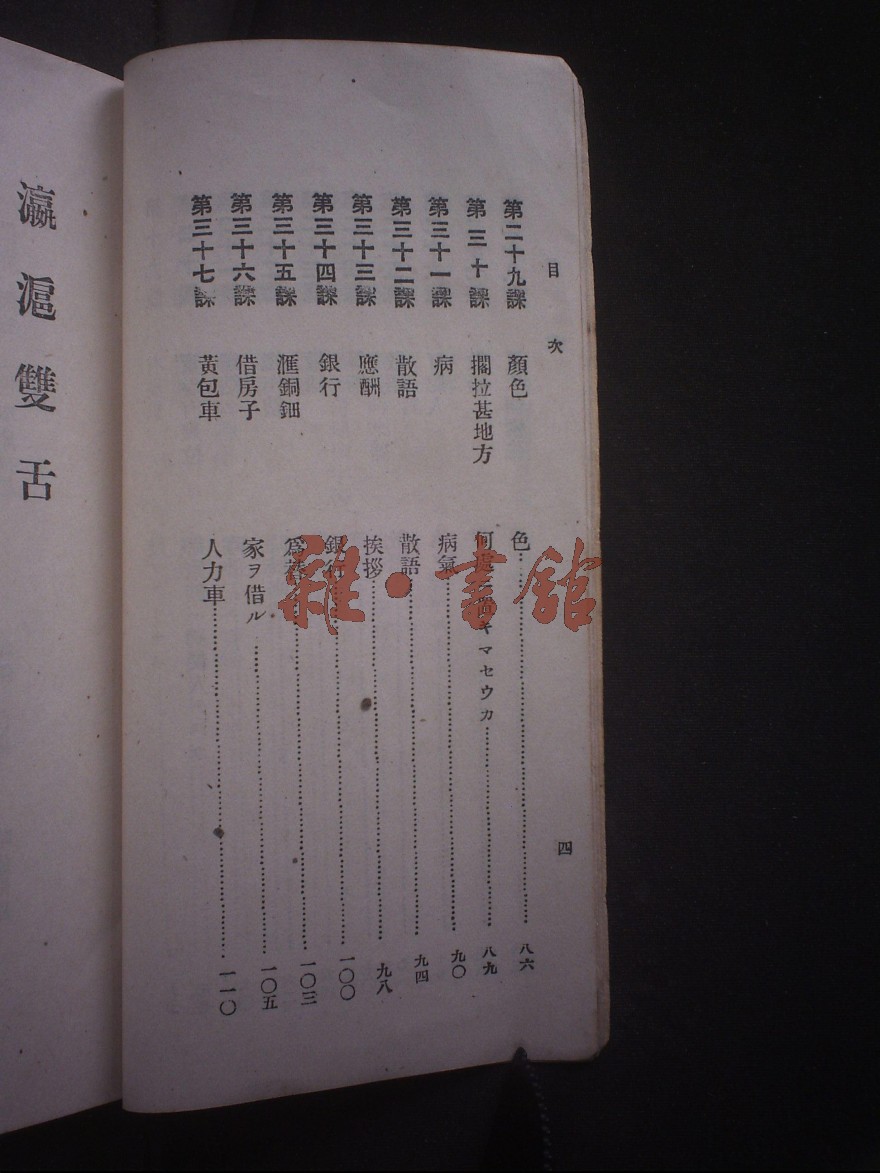 目次 四
第二十九課 顏色 色 八六
第三十課 擱拉甚地方 何處 キマセウカ 八九
第三十一課 病 病氣 九〇
第三十二課 散語 散語 九四
第三十三課 應酬 挨拶 九八
第三十四課 銀行 銀行 一〇〇
第三十五課 滙銅鈿 爲替 一〇三
第三十六課 借房子 家ヲ借ル 一〇五
第三十七課 黃包車 人力車 一一〇
瀛滬雙舌
雜·書館